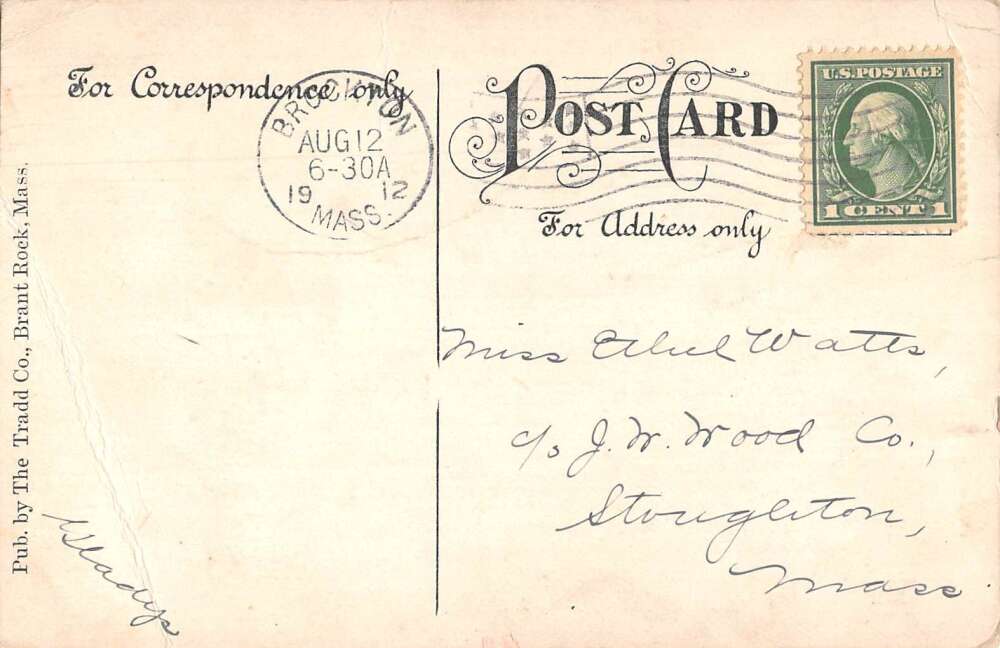 For Correspondence only
BROCKTON
AUG 12
6-30A
19 12
MASS.
POST CARD
For Address only
U.S. POSTAGE
1 CENT 1
Miss Ethel Watts,
c/o J. W. Wood Co.,
Stoughton,
Mass
Gladys
Pub. by The Tradd Co., Brant Rock, Mass.